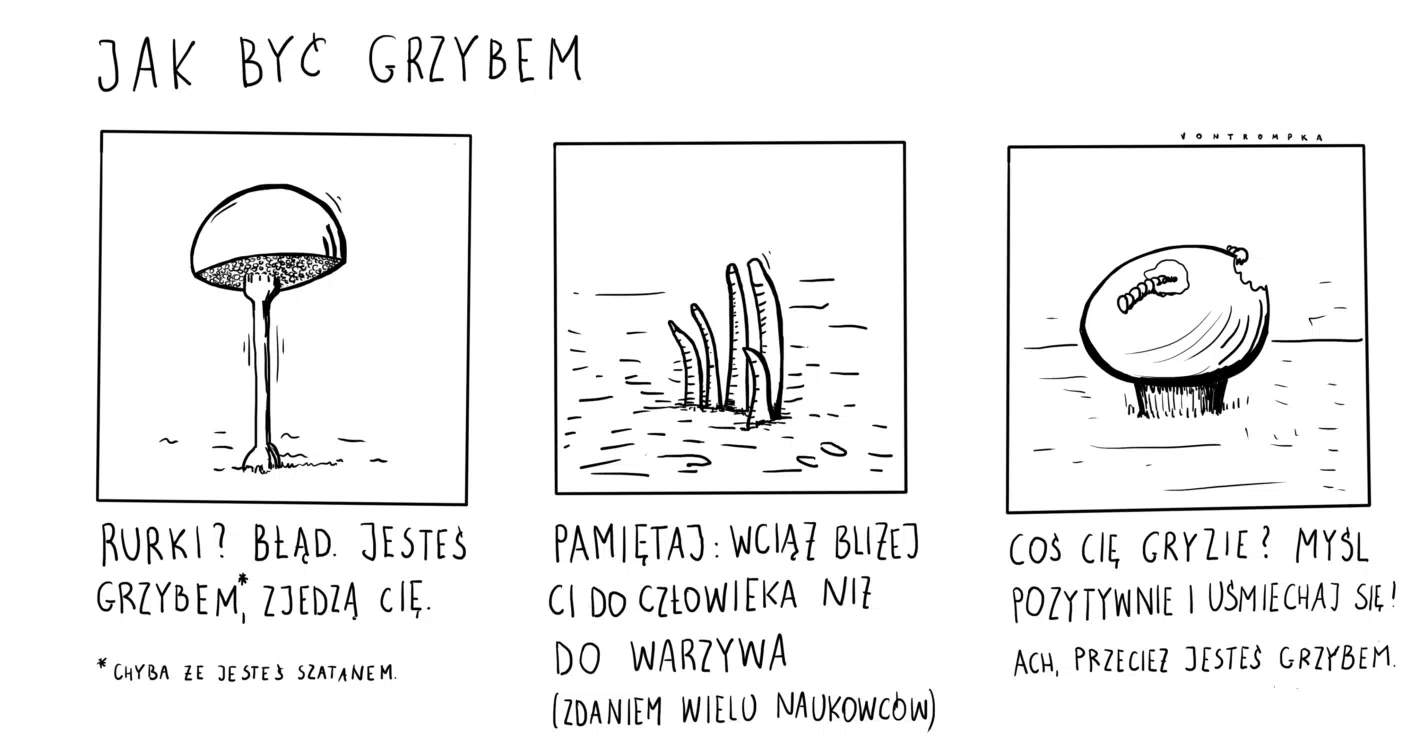 JAK BYĆ GRZYBEM
VONTROMPKA
RURKI? BŁĄD. JESTEŚ
GRZYBEM*, ZJEDZĄ CIĘ.
* CHYBA ŻE JESTEŚ SZATANEM.
PAMIĘTAJ: WCIĄŻ BLIŻEJ
CI DO CZŁOWIEKA NIŻ
DO WARZYWA
(ZDANIEM WIELU NAUKOWCÓW)
COŚ CIĘ GRYZIE? MYŚL
POZYTYWNIE I UŚMIECHAJ SIĘ!
ACH, PRZECIEŻ JESTEŚ GRZYBEM.